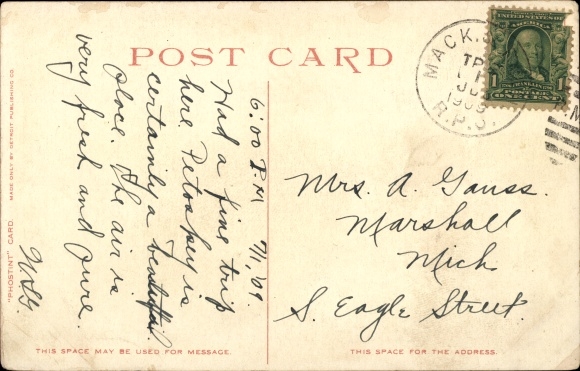 POST CARD
6:00 P.M 7/1, '09.
Had a fine trip
here Petoskey is
certainly a beautiful
place. The air is
very fresh and pure.
Mrs. A. Gauss.
Marshall
Mich
S. Eagle Street.
MACK.
1909
R.P.O.
UNITED STATES OF
AMERICA
1 1
FRANKLIN
POSTAGE
ONE CENT
THIS SPACE MAY BE USED FOR MESSAGE.
THIS SPACE FOR THE ADDRESS.
"PHOSTINT" CARD. MADE ONLY BY DETROIT PUBLISHING CO.